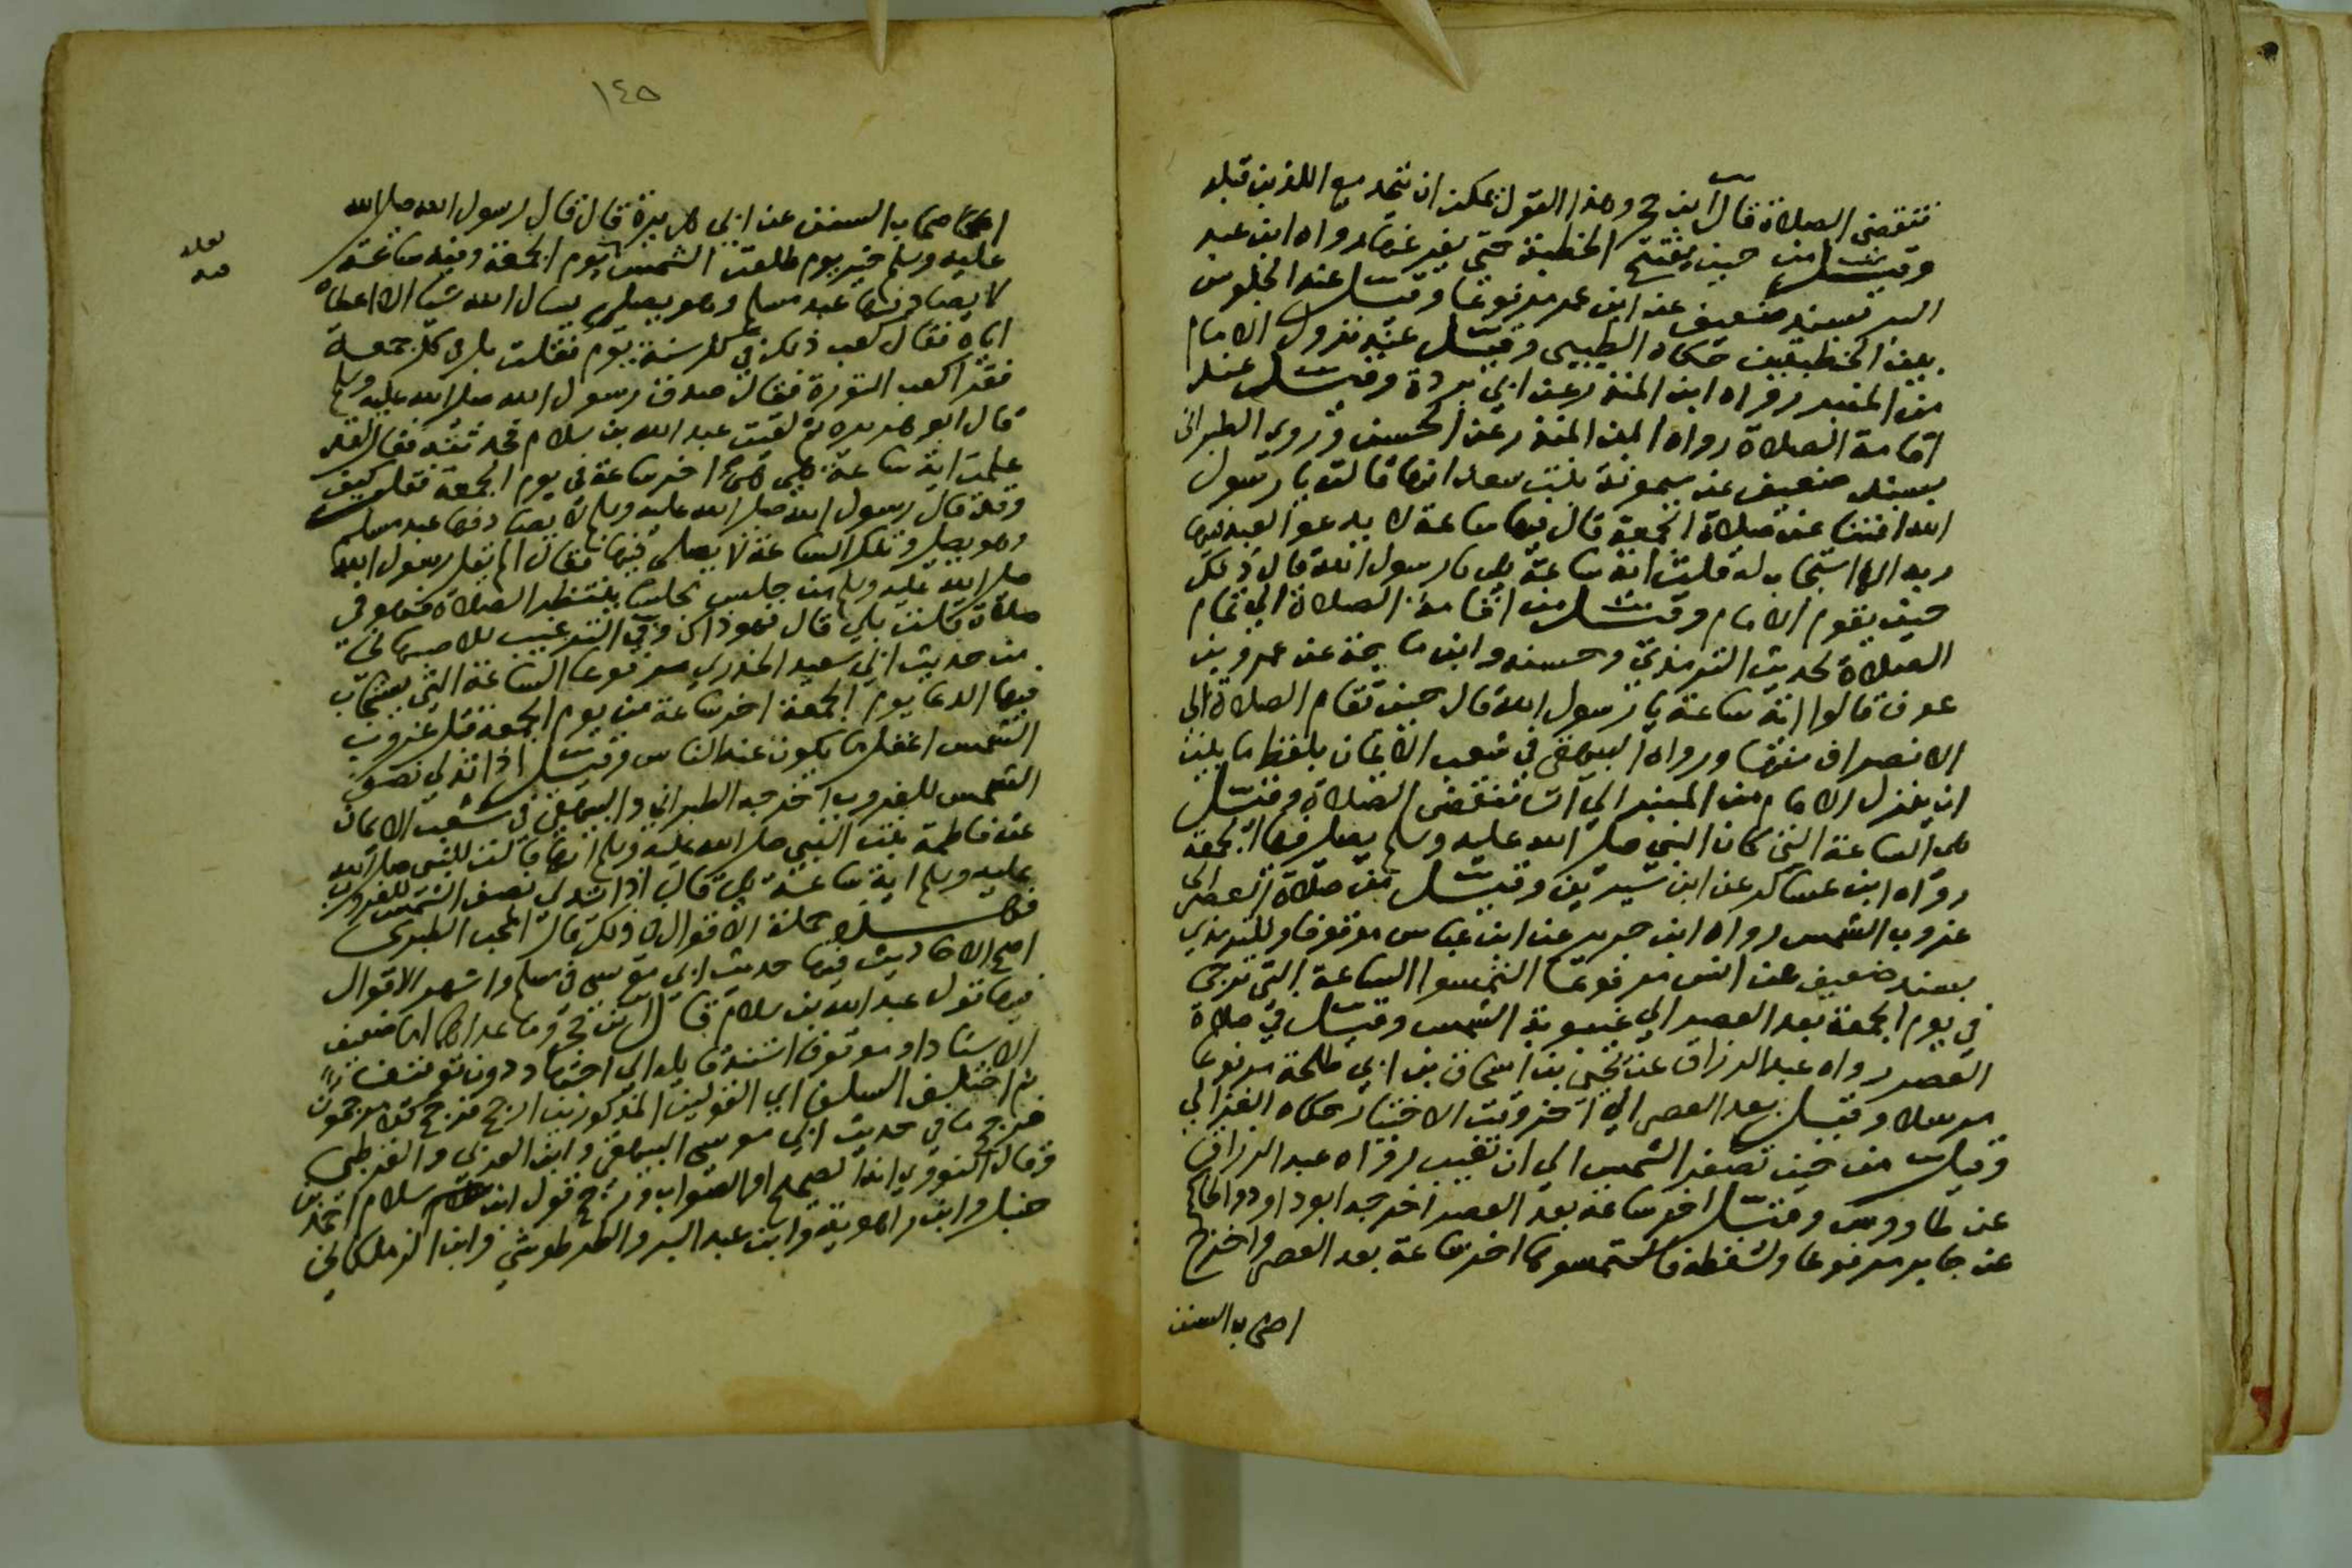 تنقضي الصلاة قال ابن حجر وهذا القول يمكن ان يتحد مع اللذين قبله
وقيل من حين يفتتح الخطبة حتى يفرغها رواه ابن عبد
البر بسند ضعيف عن ابن عمر مرفوعا وقيل عند الجلوس
بين الخطبتين حكاه الطيبي وقيل عند نزول الامام
من المنبر رواه ابن المنذر عن ابي بردة وقيل عند
اقامة الصلاة رواه ابن المنذر عن الحسن وروى الطبراني
بسند ضعيف عن ميمونة بنت سعد انها قالت يا رسول
الله افتنا عن صلاة الجمعة قال فيها ساعة لا يدعو العبد فيها
ربه الا استجاب له قلت اية ساعة هي يا رسول الله قال ذلك
حين يقوم الامام وقيل من اقامة الصلاة الى تمام
الصلاة لحديث الترمذي وحسنه وابن ماجة عن عمرو بن
عوف قالوا اية ساعة يا رسول الله قال حين تقام الصلاة الى
الانصراف منها ورواه البيهقي في شعب الايمان بلفظ ما بين
ان ينزل الامام من المنبر الى ان تنقضي الصلاة وقيل
هي الساعة التي كان النبي صلى الله عليه وسلم يصلي فيها الجمعة
رواه ابن عساكر عن ابن سيرين وقيل من صلاة العصر الى
غروب الشمس رواه ابن جرير عن ابن عباس موقوفا وللترمذي
بسند ضعيف عن انس مرفوعا التمسوا الساعة التي ترجى
في يوم الجمعة بعد العصر الى غيبوبة الشمس وقيل في صلاة
العصر رواه عبد الرزاق عن يحيى بن اسحاق بن ابي طلحة مرفوعا
مرسلا وقيل بعد العصر الى اخر وقت الاختيار حكاه الغزالي
وقيل من حين تصفر الشمس الى ان تغيب رواه عبد الرزاق
عن طاووس وقيل اخر ساعة بعد العصر اخرجه ابو داود والحاكم
عن جابر مرفوعا ولفظه فالتمسوها اخر ساعة بعد العصر واخرج
اصحاب السنن
١٤٥
اصحاب السنن عن ابي هريرة قال قال رسول الله صلى الله
عليه وسلم خير يوم طلعت الشمس يوم الجمعة وفيه ساعة
لا يصادفها عبد مسلم وهو يصلي يسال الله شيا الا اعطاه
اياه فقال كعب ذلك في كل سنة يوم فقلت بل في كل جمعة
فقرا كعب التورة فقال صدق رسول الله صلى الله عليه وسلم
قال ابو هريرة ثم لقيت عبد الله بن سلام فحدثته فقال قد
علمت اية ساعة هي هي اخر ساعة في يوم الجمعة فقلت كيف
وقد قال رسول الله صلى الله عليه وسلم لا يصادفها عبد مسلم
وهو يصلي وتلك الساعة لا يصلى فيها فقال الم يقل رسول الله
صلى الله عليه وسلم من جلس مجلسا ينتظر الصلاة فهو في
صلاة قلت بلى قال فهو ذاك وفي الترغيب للاصبهاني
من حديث ابي سعيد الخدري مرفوعا الساعة التي يستجاب
فيها الدعا يوم الجمعة اخر ساعة من يوم الجمعة قبل غروب
الشمس اغفل ما يكون عند الناس وقيل اذا تدلى نصف
الشمس للغروب اخرجه الطبراني والبيهقي في شعب الايمان
عن فاطمة بنت النبي صلى الله عليه وسلم انها قالت للنبي صلى الله
عليه وسلم اية ساعة هي قال اذا تدلى نصف الشمس للغروب
فهذه جملة الاقوال في ذلك قال المحب الطبري
اصح الاحاديث فيها حديث ابي موسى في مسلم واشهر الاقوال
فيها قول عبد الله بن سلام قال ابن حجر وما عداهما اما ضعيف
الاسناد او موقوف استند قايله الى اجتهاد دون توقيف
ثم اختلف السلف اي القولين المذكورين ارجح فرجح كلا مرجحون
فرجح ما في حديث ابي موسى البيهقي وابن العربي والقرطبي
وقال النووي انه الصحيح او الصواب ورجح قول ابن سلام احمد بن
حنبل وابن راهوية وابن عبد البر والطرطوشي وابن الزملكاني